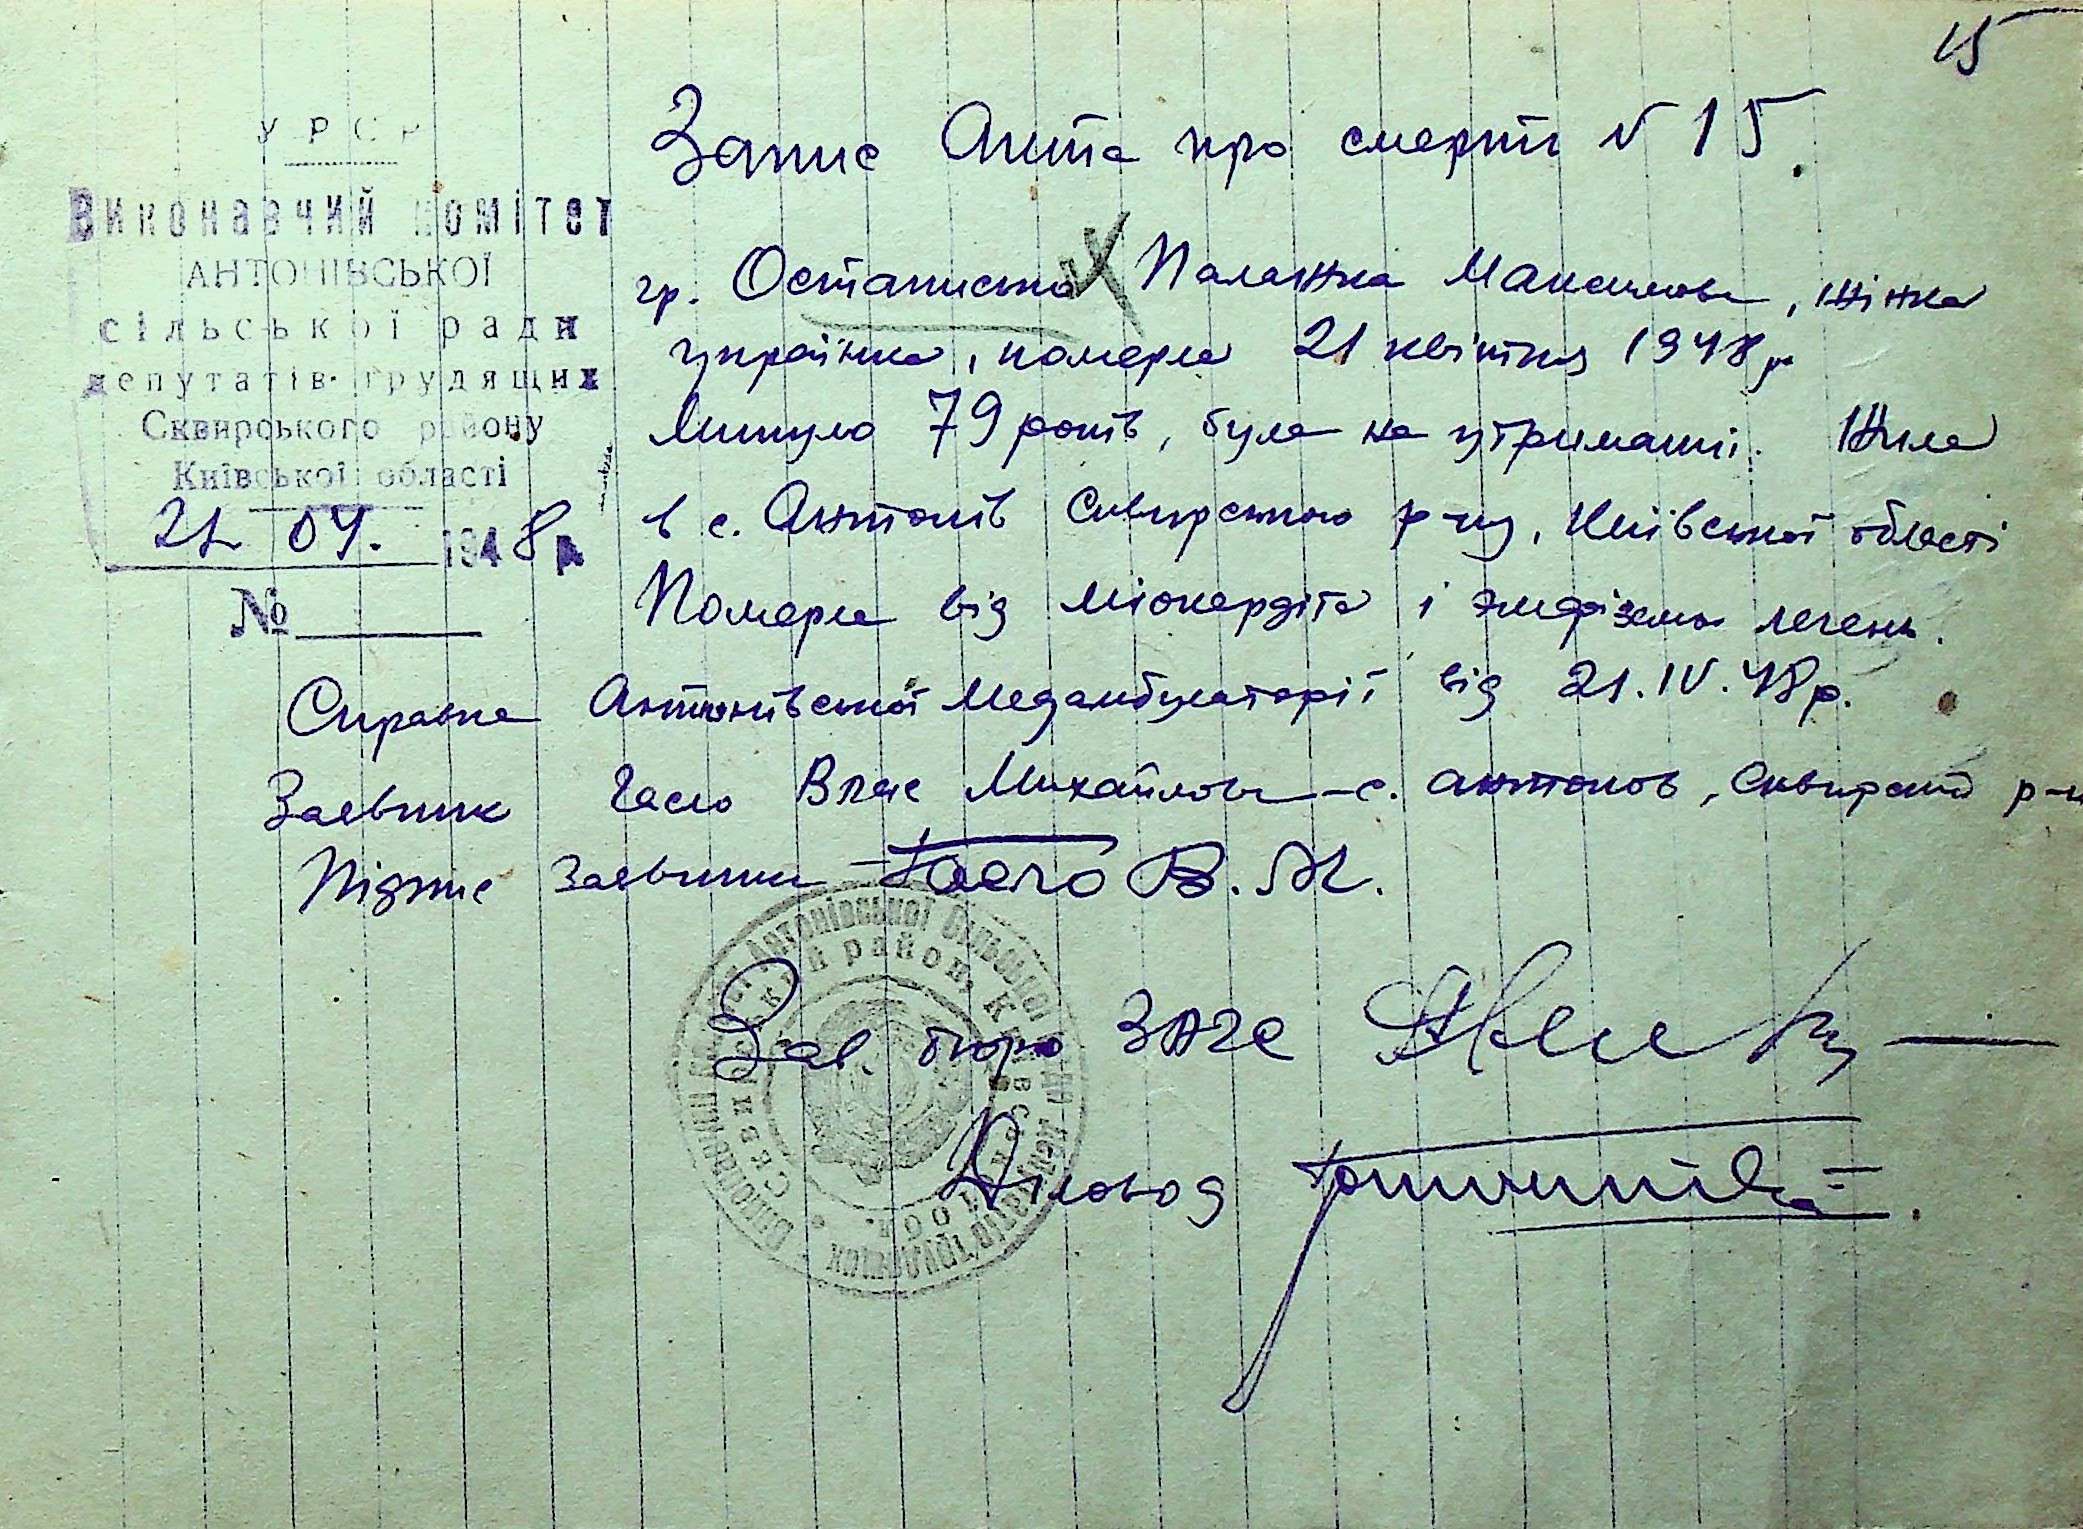 15
УРСР
Виконавчий комітет
АНТОНІВСЬКОЇ
сільської ради
депутатів трудящих
Сквирського району
Київської області
21 04. 1948 р
№
Запис Акта про смерть N 15.
гр. Палажка Максимовна, жінка
українка, померла 21 квітня 1948 р
Минуло 79 років, була на утриманні. Жила
в с. Антонів Сквирського р-ну, Київської області
Померла від міокардіта і эмфізема легень.
Справка Антонівської Медамбулаторії від 21.IV.48 р.
Заевник Гасло Влас Михайлович - с. Антонов, Сквирский р-н
Підпис Заевника - Гасло В. М.
Зав. бюро ЗАГС
Діловод
Виконавчий комітет Антонівської сільської ради депутатів трудящих
Сквирський район, Київська обл.